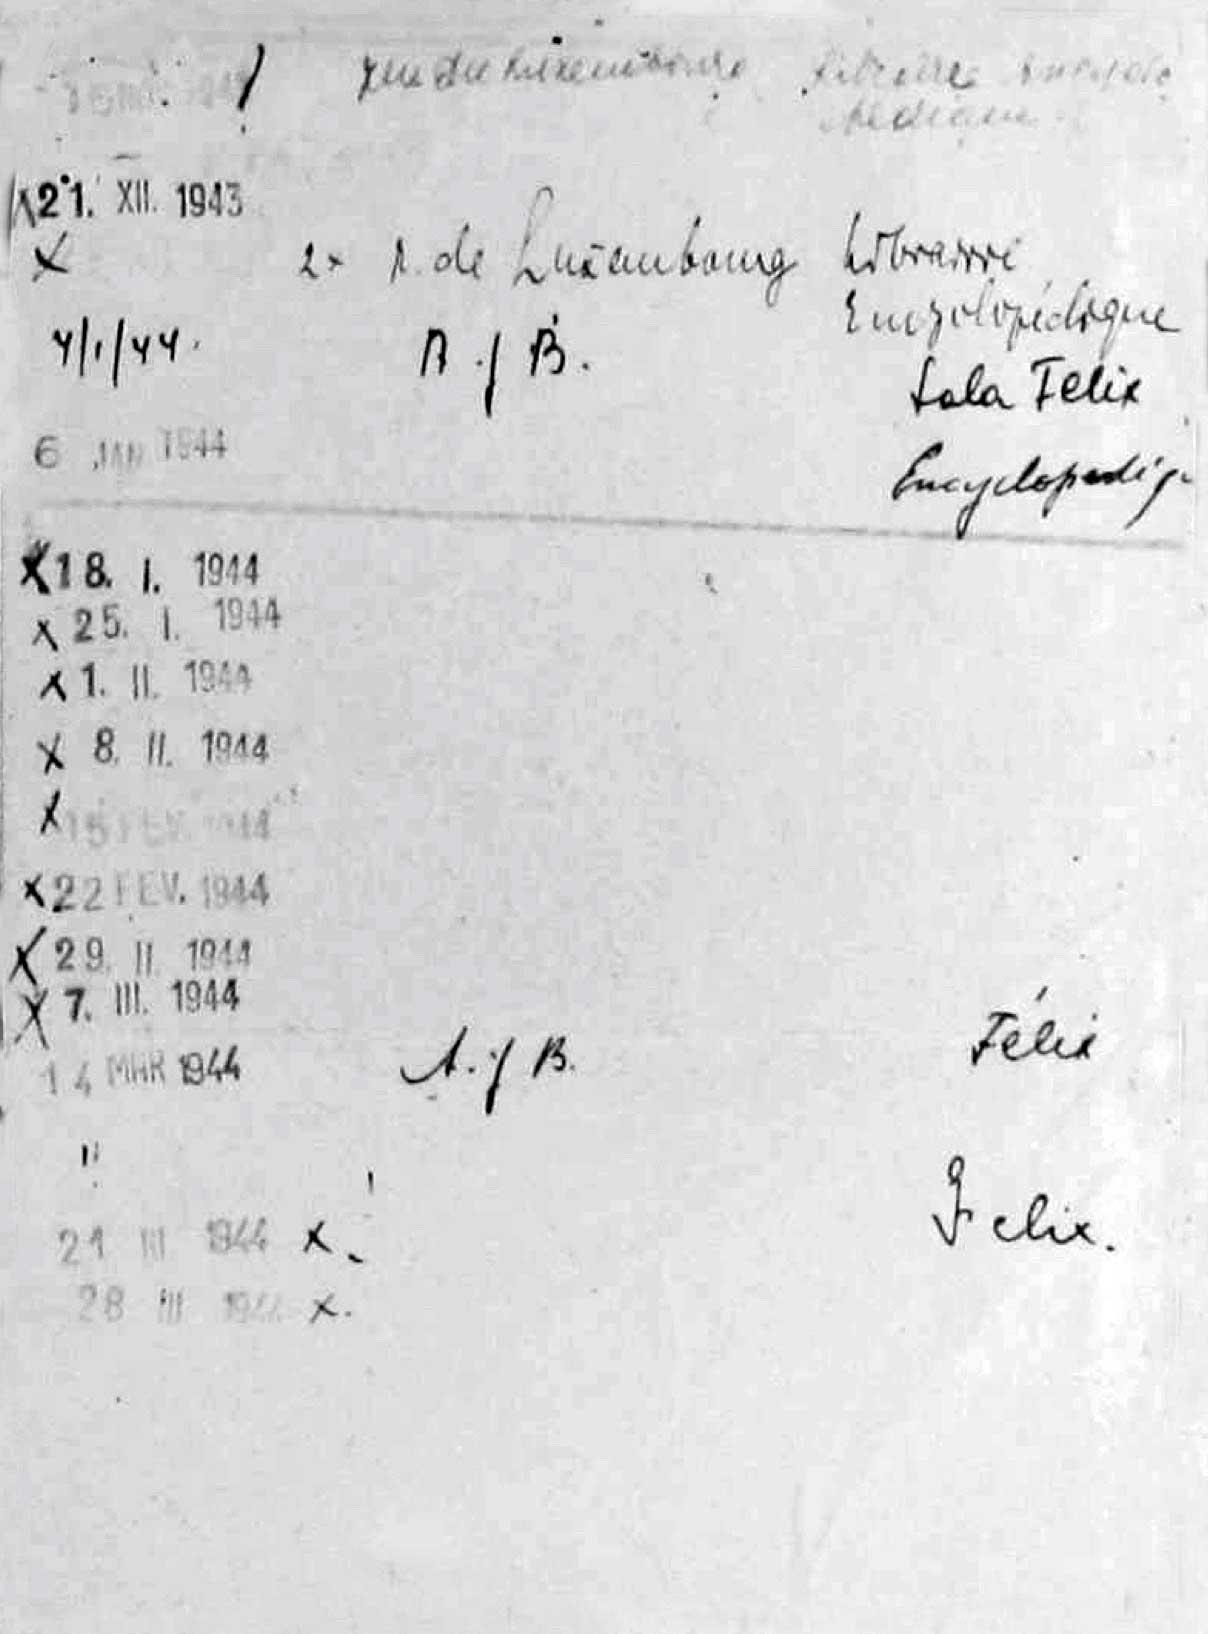 rue du Luxembourg
21. XII. 1943
x 2x r. de Luxembourg Librairie
Encyclopédique
4/1/44. A. / B.
Lola Felix
6 JAN 1944
Encyclopédiq.
X 18. I. 1944
x 25. I. 1944
x 1. II. 1944
x 8. II. 1944
x 15 FEV. 1944
x 22 FEV. 1944
X 29. II 1944
X 7. III. 1944
14 MAR 1944 A. / B. Félix
"
21 III 1944 x. Felix.
28 III 1944 x.